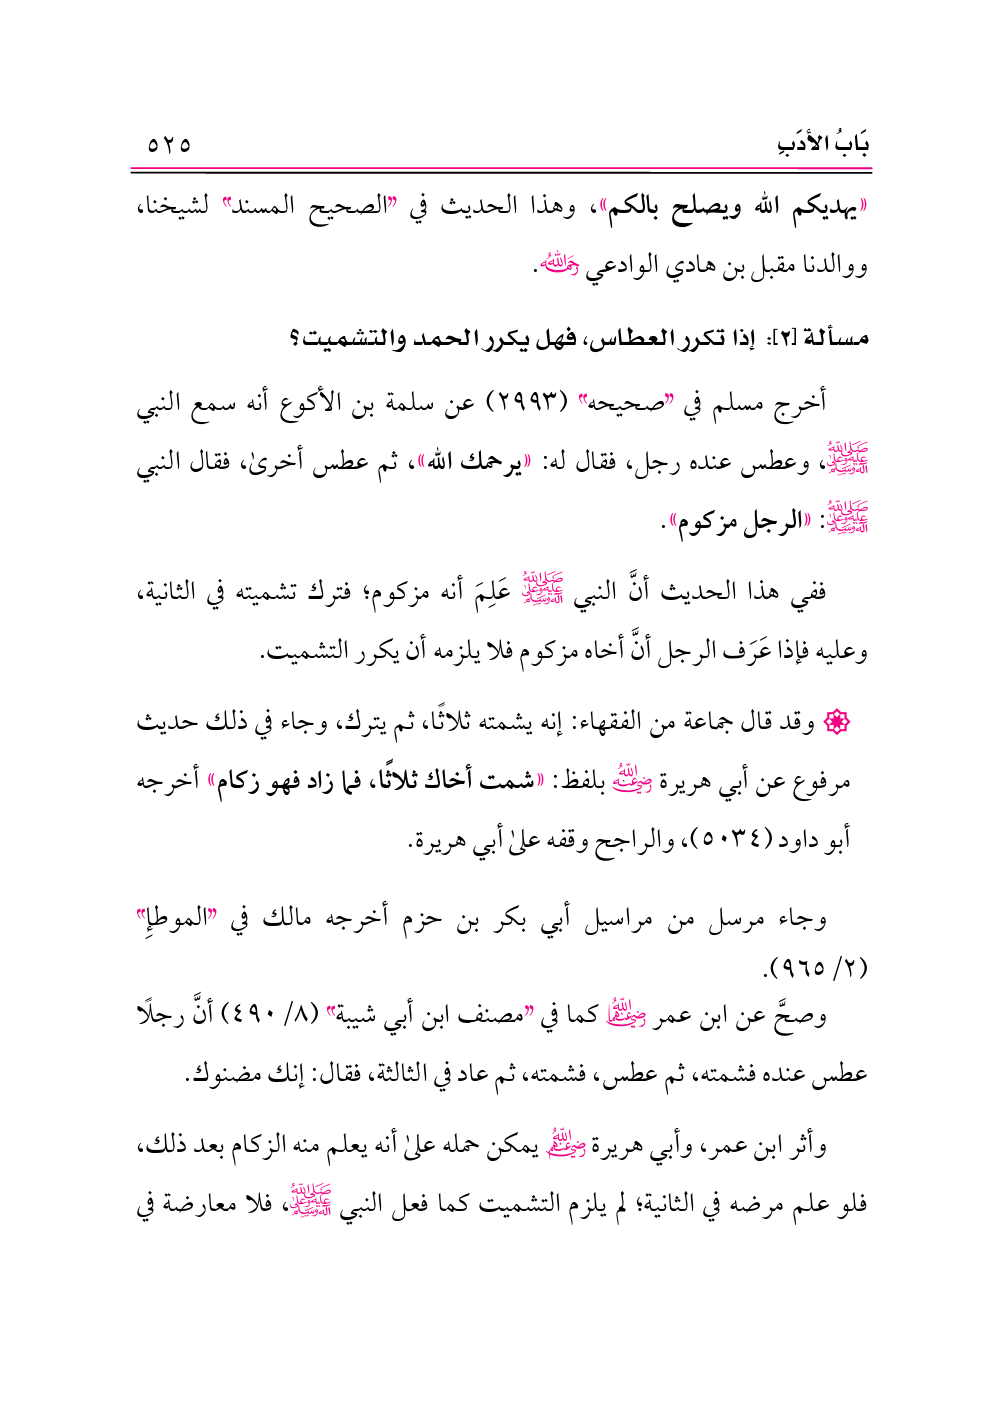 بَابُ الأدَبِ ٥٢٥
«يهديكم الله ويصلح بالكم»، وهذا الحديث في "الصحيح المسند" لشيخنا،
ووالدنا مقبل بن هادي الوادعي رَحِمَهُ اللَّهُ.
مسألة [٢]: إذا تكرر العطاس، فهل يكرر الحمد والتشميت؟
أخرج مسلم في "صحيحه" (٢٩٩٣) عن سلمة بن الأكوع أنه سمع النبي
صَلَّى اللَّهُ عَلَيْهِ وَعَلَى آلِهِ وَسَلَّمَ، وعطس عنده رجل، فقال له: «يرحمك الله»، ثم عطس أخرىٰ، فقال النبي
صَلَّى اللَّهُ عَلَيْهِ وَعَلَى آلِهِ وَسَلَّمَ: «الرجل مزكوم».
ففي هذا الحديث أنَّ النبي صَلَّى اللَّهُ عَلَيْهِ وَعَلَى آلِهِ وَسَلَّمَ عَلِمَ أنه مزكوم؛ فترك تشميته في الثانية،
وعليه فإذا عَرَف الرجل أنَّ أخاه مزكوم فلا يلزمه أن يكرر التشميت.
وقد قال جماعة من الفقهاء: إنه يشمته ثلاثًا، ثم يترك، وجاء في ذلك حديث
مرفوع عن أبي هريرة رَضِيَ اللَّهُ عَنْهُ بلفظ: «شمت أخاك ثلاثًا، فما زاد فهو زكام» أخرجه
أبو داود (٥٠٣٤)، والراجح وقفه علىٰ أبي هريرة.
وجاء مرسل من مراسيل أبي بكر بن حزم أخرجه مالك في "الموطإِ"
(٢/ ٩٦٥).
وصحَّ عن ابن عمر رَضِيَ اللَّهُ عَنْهُمَا كما في "مصنف ابن أبي شيبة" (٨/ ٤٩٠) أنَّ رجلًا
عطس عنده فشمته، ثم عطس، فشمته، ثم عاد في الثالثة، فقال: إنك مضنوك.
وأثر ابن عمر، وأبي هريرة رَضِيَ اللَّهُ عَنْهُمْ يمكن حمله علىٰ أنه يعلم منه الزكام بعد ذلك،
فلو علم مرضه في الثانية؛ لم يلزم التشميت كما فعل النبي صَلَّى اللَّهُ عَلَيْهِ وَعَلَى آلِهِ وَسَلَّمَ، فلا معارضة في